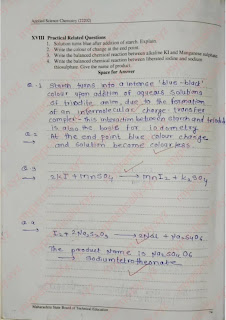 Applied Science Chemistry (22202)
XVIII Practical Related Questions
1. Solution turns blue after addition of starch. Explain.
2. Write the colour of change at the end point.
3. Write the balanced chemical reaction between alkaline KI and Manganous sulphate
4. Write the balanced chemical reaction between liberated iodine and sodium
thiosulphate. Give the name of product.
Space for Answer
Q.1 Starch turns into a intense 'blue-black'
colour upon addition of aqueous solutions
of triiodide anion, due to the formation
of an intermolecular charge transfer
complex - this interaction between starch and triiodide
is also the basis for iodometry
Q.2 At the end point blue colour change
and solution become colourless.
Q.3 2KI + MnSO4 → MnI2 + K2SO4
Q.4
I2 + 2Na2S2O3 → 2NaI + Na2S4O6
The product name is Na2S4O6
→ sodium tetrathionate
Maharashtra State Board of Technical Education